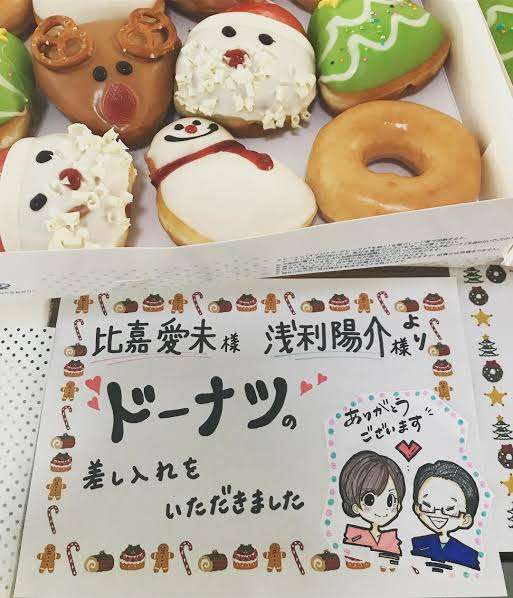 比嘉愛未様 浅利陽介様より
ドーナツの
差し入れを
いただきました
ありがとう
ございます